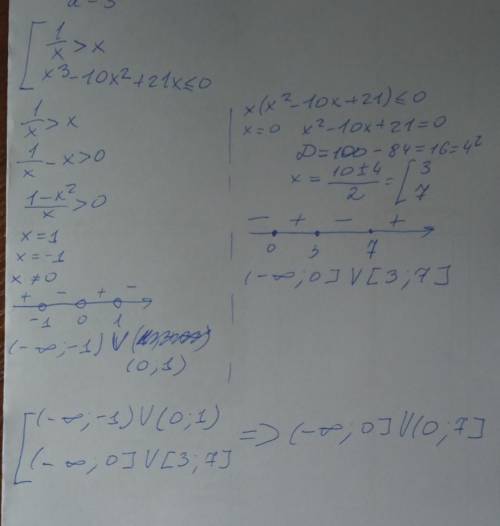 a-3
[ 1/x > x
x³-10x²+21x≤0
1/x > x
1/x - x > 0
(1-x²)/x > 0
x=1
x=-1
x≠0
+ - + -
-1 0 1
(-∞;-1) V
(0,1)
x(x²-10x+21)≤0
x=0 x²-10x+21=0
D=100-84=16=4²
x = (10±4)/2 = [ 3
7
- + - +
0 3 7
(-∞;0] V [3;7]
[ (-∞;-1) V (0;1)
(-∞;0] V [3;7]
=> (-∞;0] V (0;7]